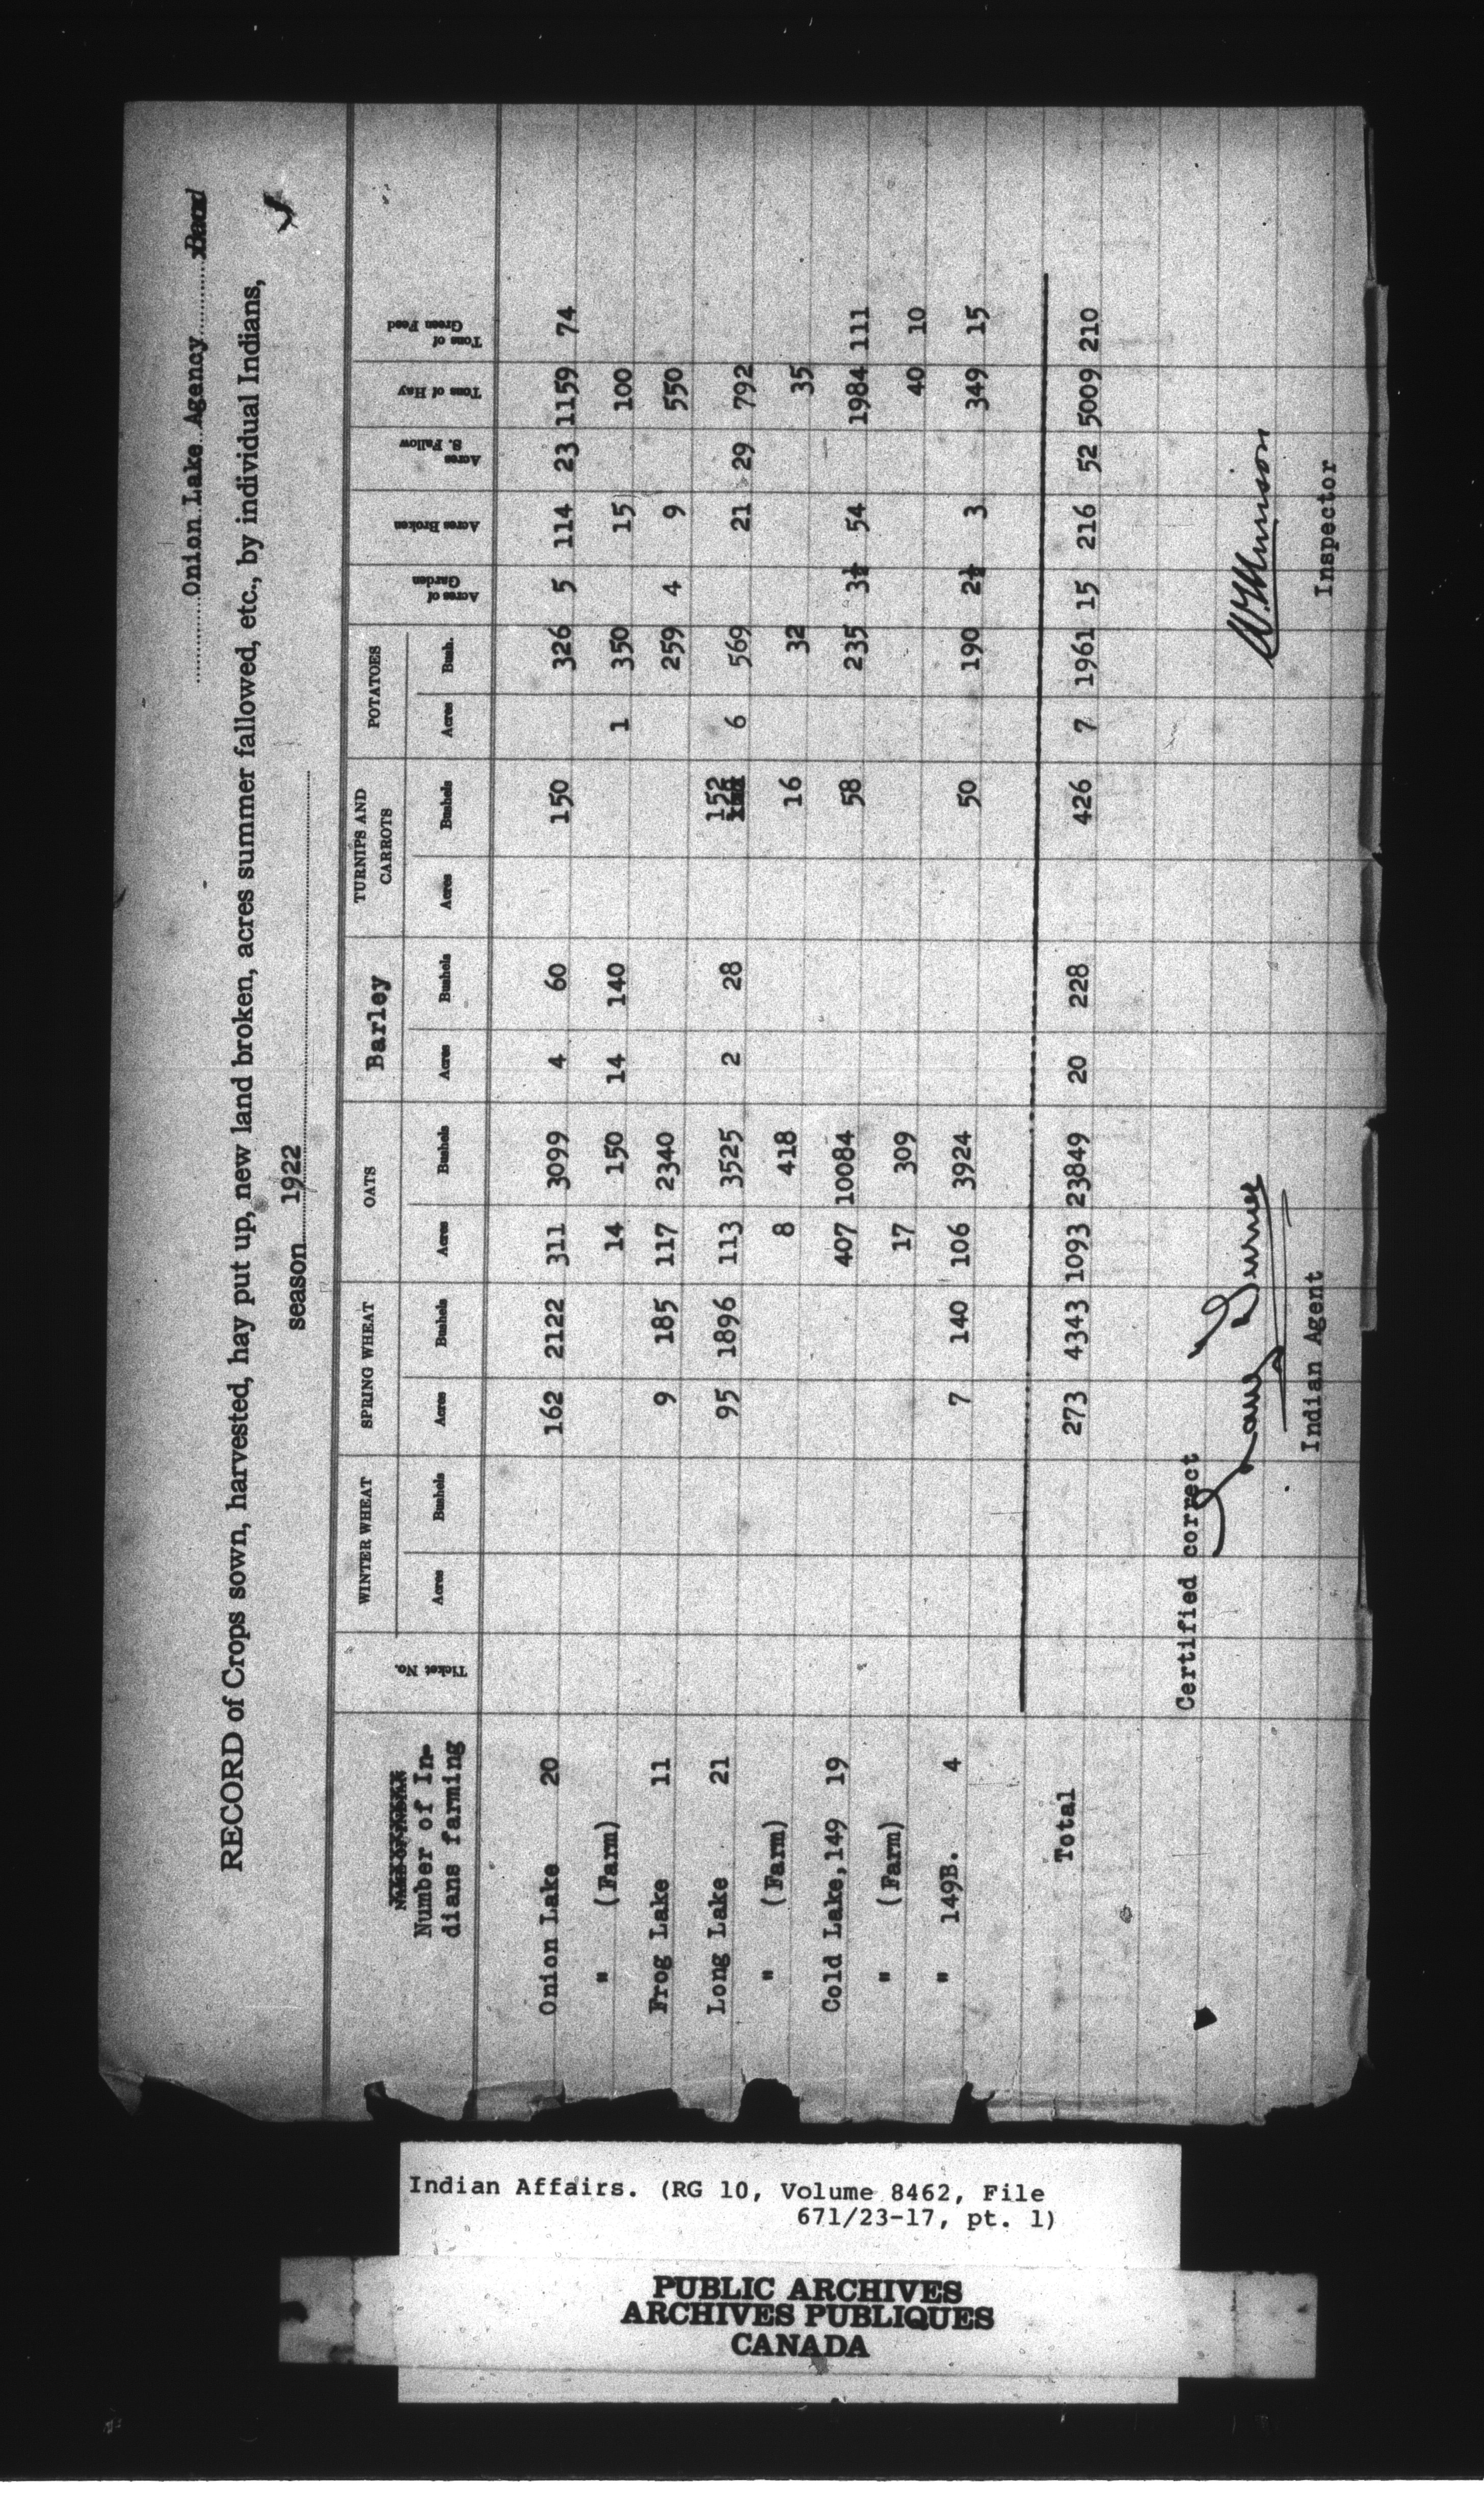 Onion Lake Agency Band
RECORD of Crops sown, harvested, hay put up, new land broken, acres summer fallowed, etc., by individual Indians,
season 1922
Number of In-
dians farming
Ticket No.
WINTER WHEAT
Acres Bushels
SPRING WHEAT
Acres Bushels
OATS
Acres Bushels
Barley
Acres Bushels
TURNIPS AND
CARROTS
Acres Bushels
POTATOES
Acres Bush.
Acres of
Garden
Acres Broken
Acres
S. Fallow
Tons of Hay
Tons of
Green Feed
Onion Lake 20 162 2122 311 3099 4 60 150 326 5 114 23 1159 74
" (Farm) 14 150 14 140 1 350 15 100
Frog Lake 11 9 185 117 2340 259 4 9 550
Long Lake 21 95 1896 113 3525 2 28 152 6 569 21 29 792
" (Farm) 8 418 16 32 35
Cold Lake, 149 19 407 10084 58 235 3½ 54 1984 111
" (Farm) 17 309 40 10
" 149B. 4 7 140 106 3924 50 190 2½ 3 349 15
Total 273 4343 1093 23849 20 228 426 7 1961 15 216 52 5009 210
Certified correct
Indian Agent
Inspector
Indian Affairs. (RG 10, Volume 8462, File
671/23-17, pt. 1)
PUBLIC ARCHIVES
ARCHIVES PUBLIQUES
CANADA